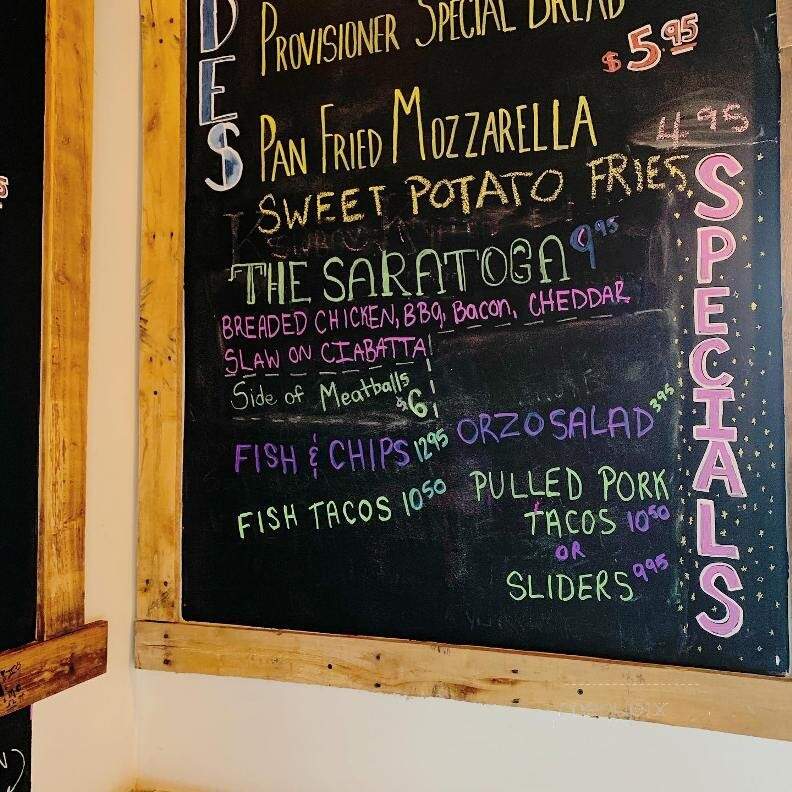 DES
PROVISIONER SPECIAL BREAD
$5.95
PAN FRIED MOZZARELLA 4.95
SWEET POTATO FRIES
THE SARATOGA 9.95
BREADED CHICKEN, BBQ, Bacon, CHEDDAR
SLAW ON CIABATTA!
Side of Meatballs
$6
FISH & CHIPS 12.95
FISH TACOS 10.50
ORZO SALAD 3.95
PULLED PORK
TACOS 10.50
OR
SLIDERS 9.95
SPECIALS